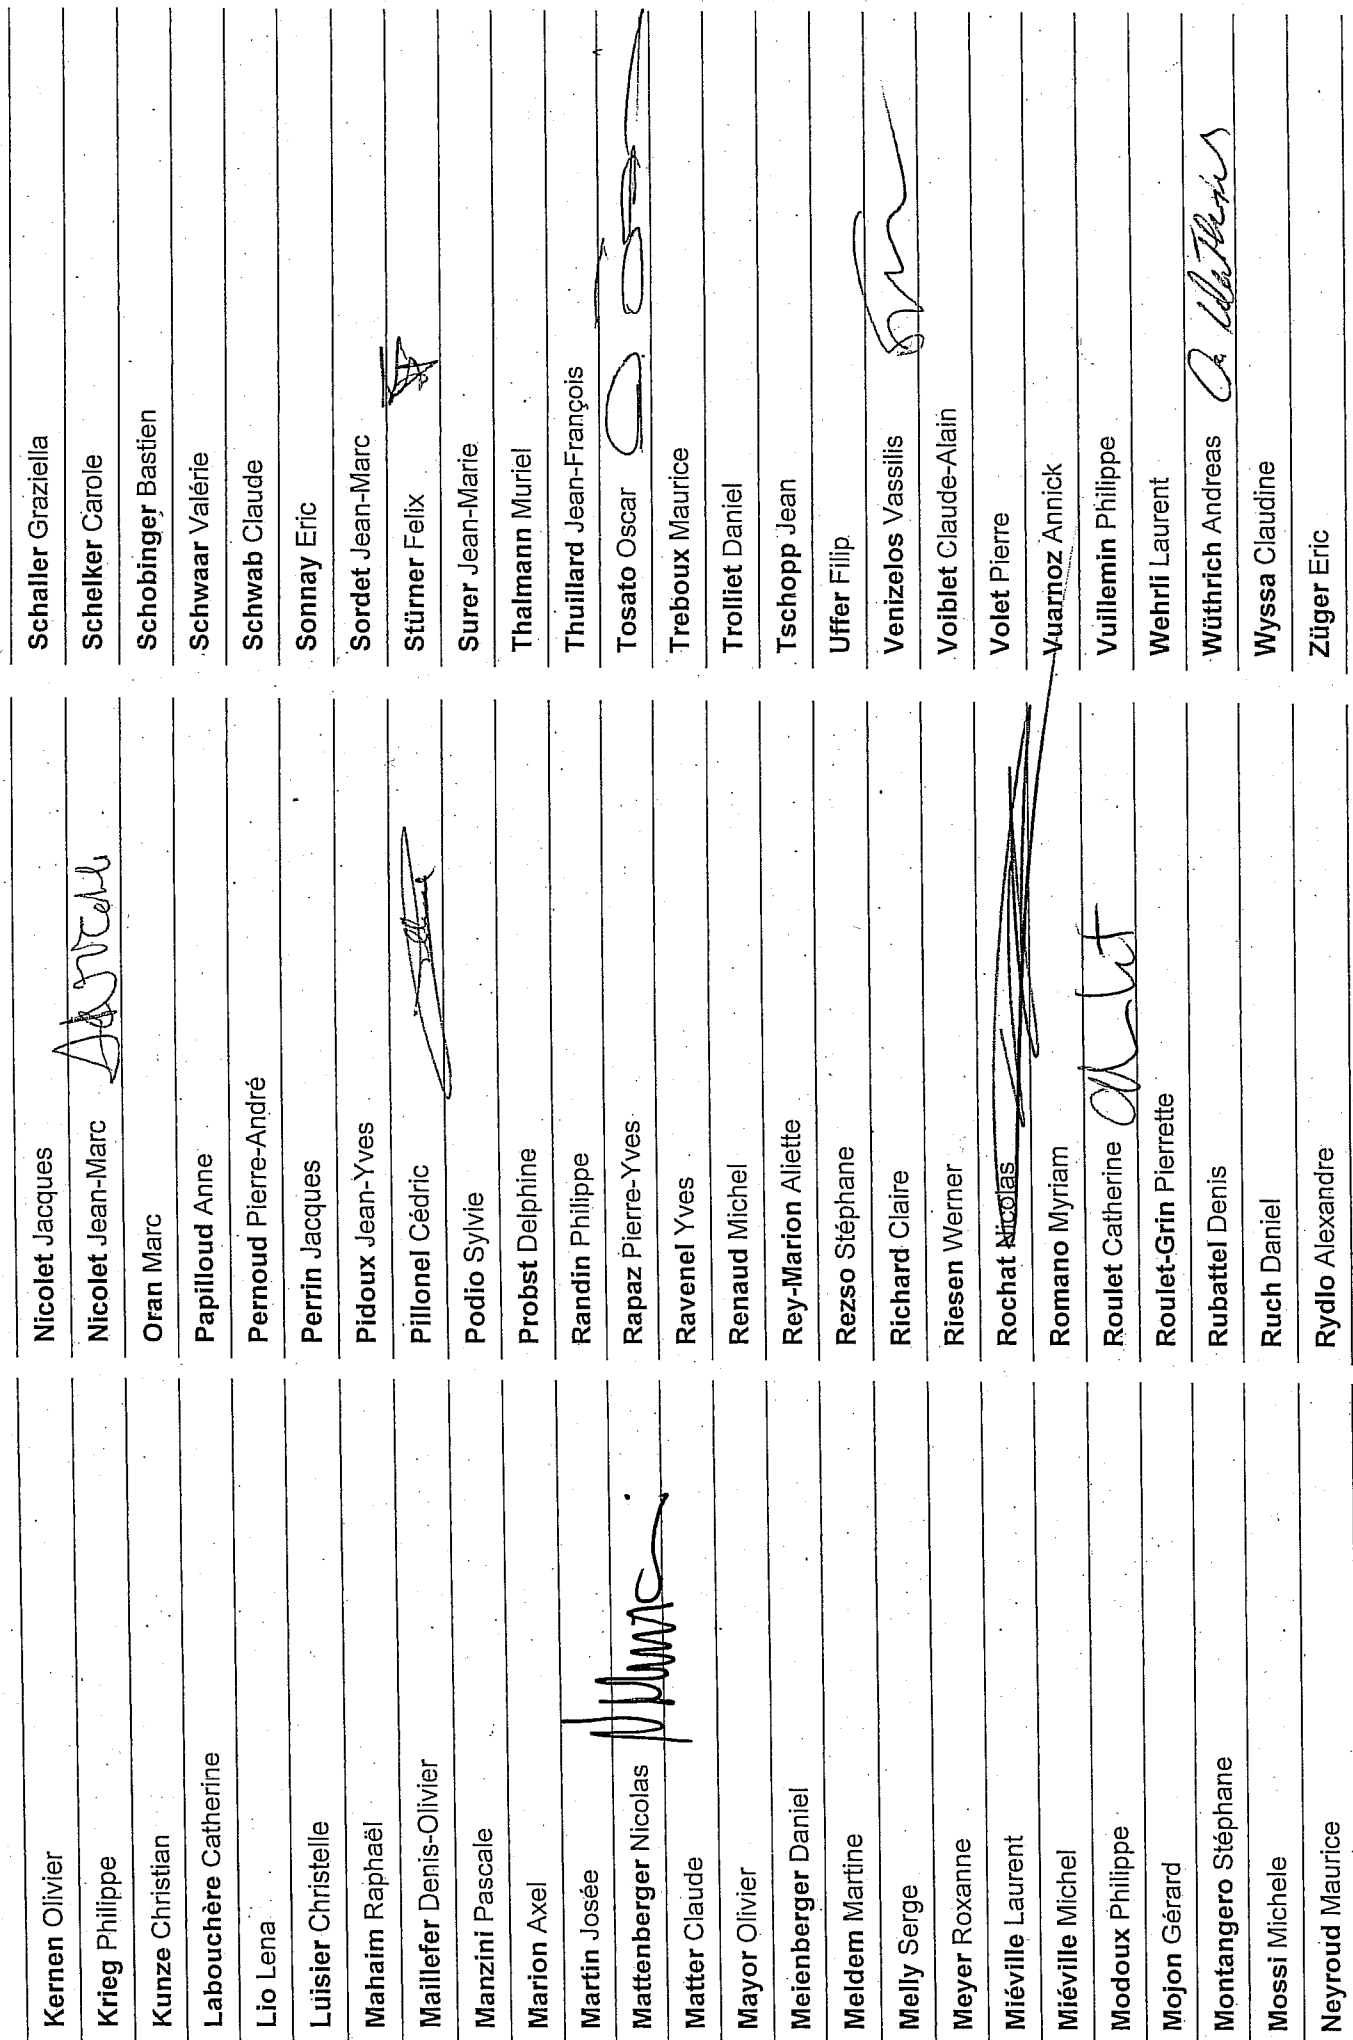 Kernen Olivier
Krieg Philippe
Kunze Christian
Labouchère Catherine
Lio Lena
Luisier Christelle
Mahaim Raphaël
Maillefer Denis-Olivier
Manzini Pascale
Marion Axel
Martin Josée
Mattenberger Nicolas
Matter Claude
Mayor Olivier
Meienberger Daniel
Meldem Martine
Melly Serge
Meyer Roxanne
Miéville Laurent
Miéville Michel
Modoux Philippe
Mojon Gérard
Montangero Stéphane
Mossi Michele
Neyroud Maurice
Nicolet Jacques
Nicolet Jean-Marc
Oran Marc
Papilloud Anne
Pernoud Pierre-André
Perrin Jacques
Pidoux Jean-Yves
Pillonel Cédric
Podio Sylvie
Probst Delphine
Randin Philippe
Rapaz Pierre-Yves
Ravenel Yves
Renaud Michel
Rey-Marion Aliette
Rezso Stéphane
Richard Claire
Riesen Werner
Rochat Nicolas
Romano Myriam
Roulet Catherine
Roulet-Grin Pierrette
Rubattel Denis
Ruch Daniel
Rydlo Alexandre
Schaller Graziella
Schelker Carole
Schobinger Bastien
Schwaar Valérie
Schwab Claude
Sonnay Eric
Sordet Jean-Marc
Stürner Felix
Surer Jean-Marie
Thalmann Muriel
Thuillard Jean-François
Tosato Oscar
Treboux Maurice
Trolliet Daniel
Tschopp Jean
Uffer Filip
Venizelos Vassilis
Voiblet Claude-Alain
Volet Pierre
Vuarnoz Annick
Vuillemin Philippe
Wehrli Laurent
Wüthrich Andreas
Wyssa Claudine
Züger Eric